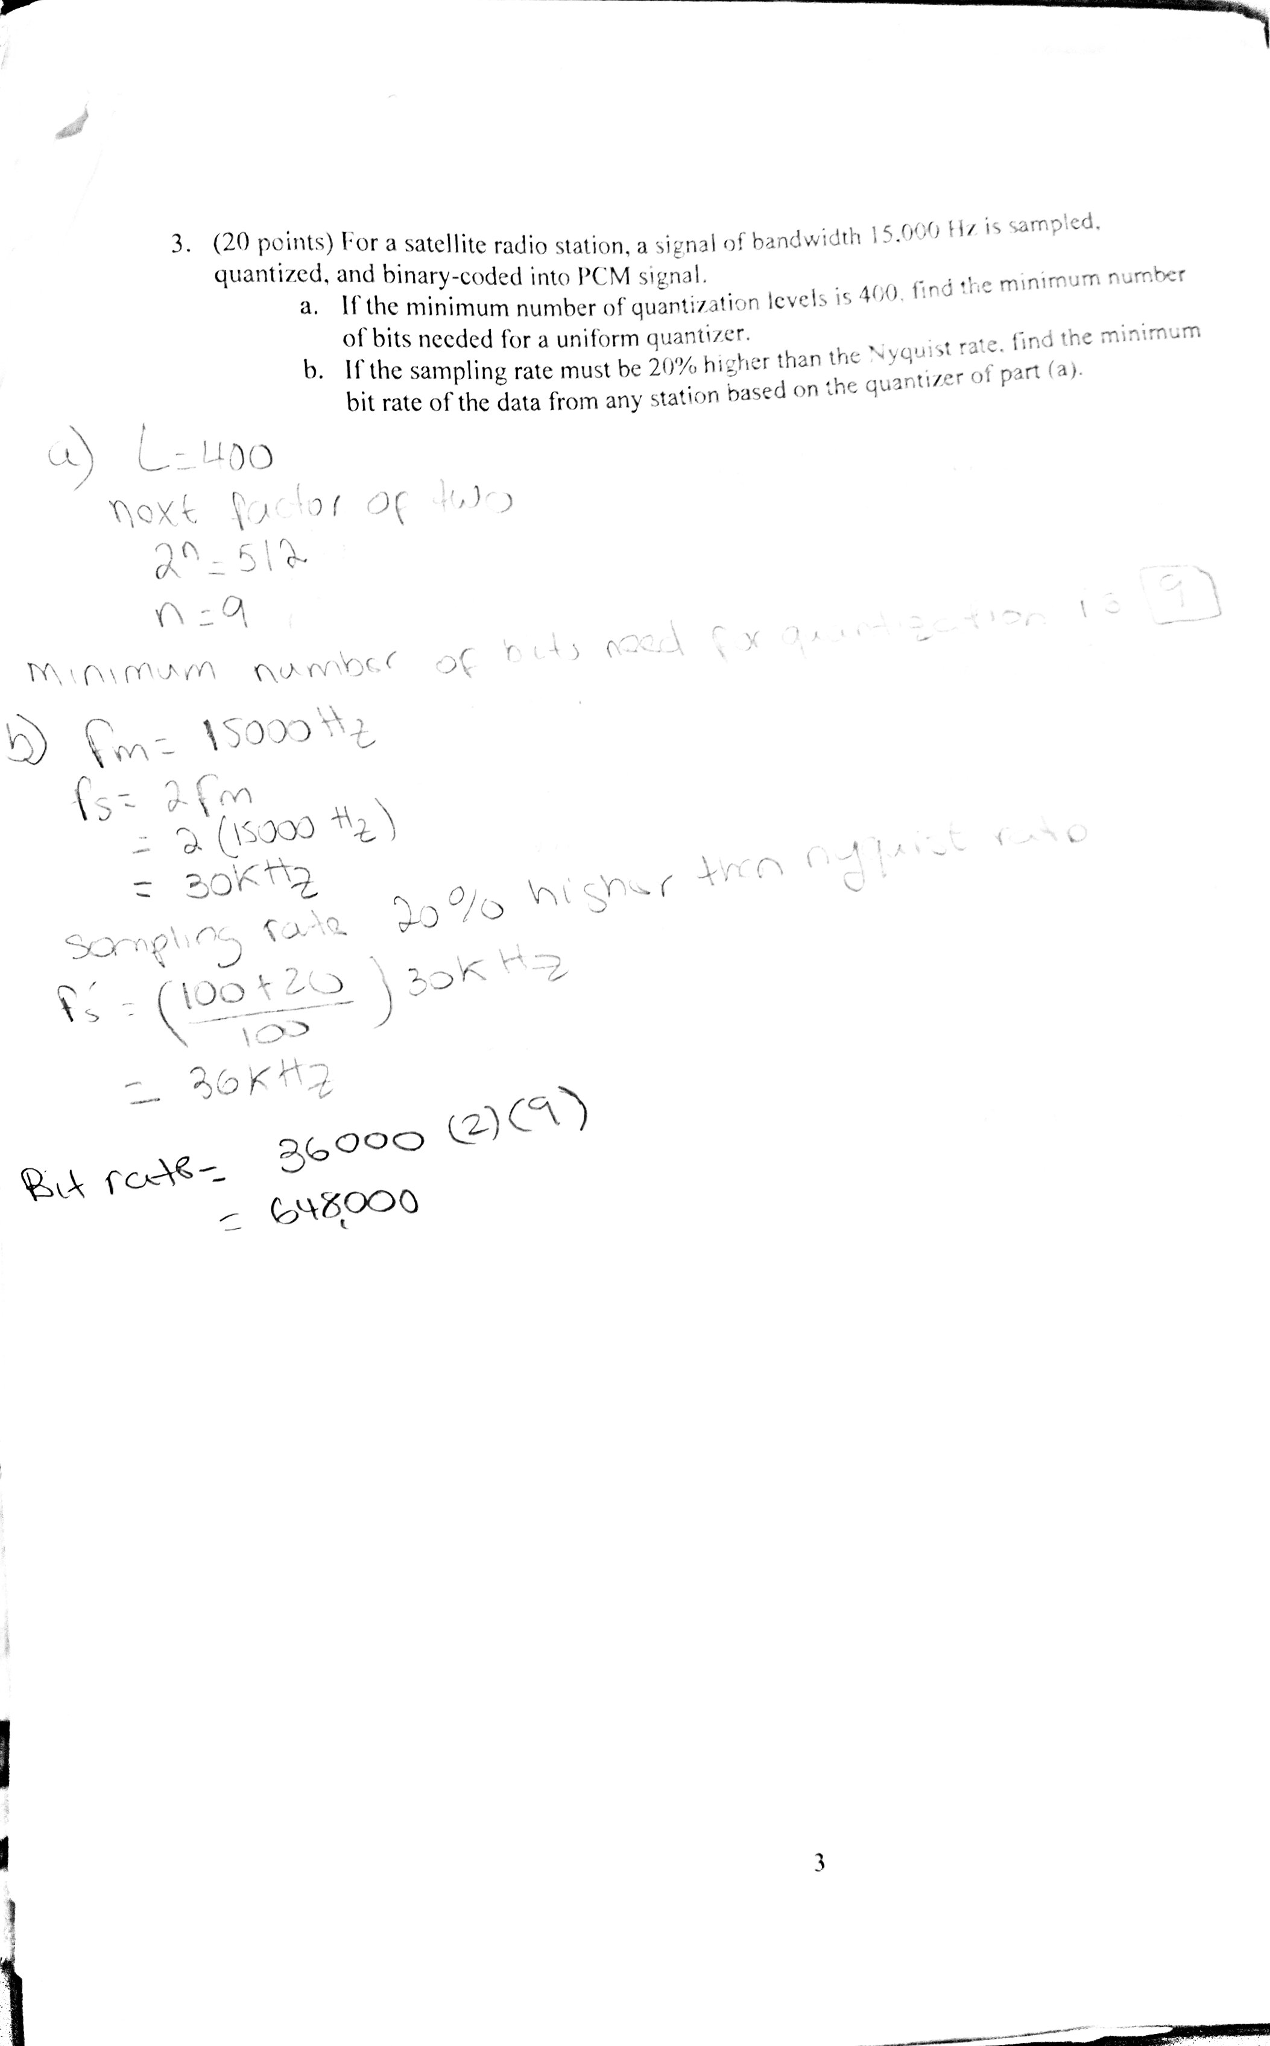 3. (20 points) For a satellite radio station, a signal of bandwidth 15,000 Hz is sampled,
quantized, and binary-coded into PCM signal.
a. If the minimum number of quantization levels is 400, find the minimum number
of bits needed for a uniform quantizer.
b. If the sampling rate must be 20% higher than the Nyquist rate, find the minimum
bit rate of the data from any station based on the quantizer of part (a).
a) L=400
next factor of two
2^n = 512
n = 9
minimum number of bits need for quantization is 9
b) fm = 15000 Hz
fs = 2fm
= 2 (15000 Hz)
= 30KHz
sampling rate 20% higher then nyquist rate
fs' = (100+20/100) 30K Hz
= 36KHz
Bit rate = 36000 (2)(9)
= 648,000
3